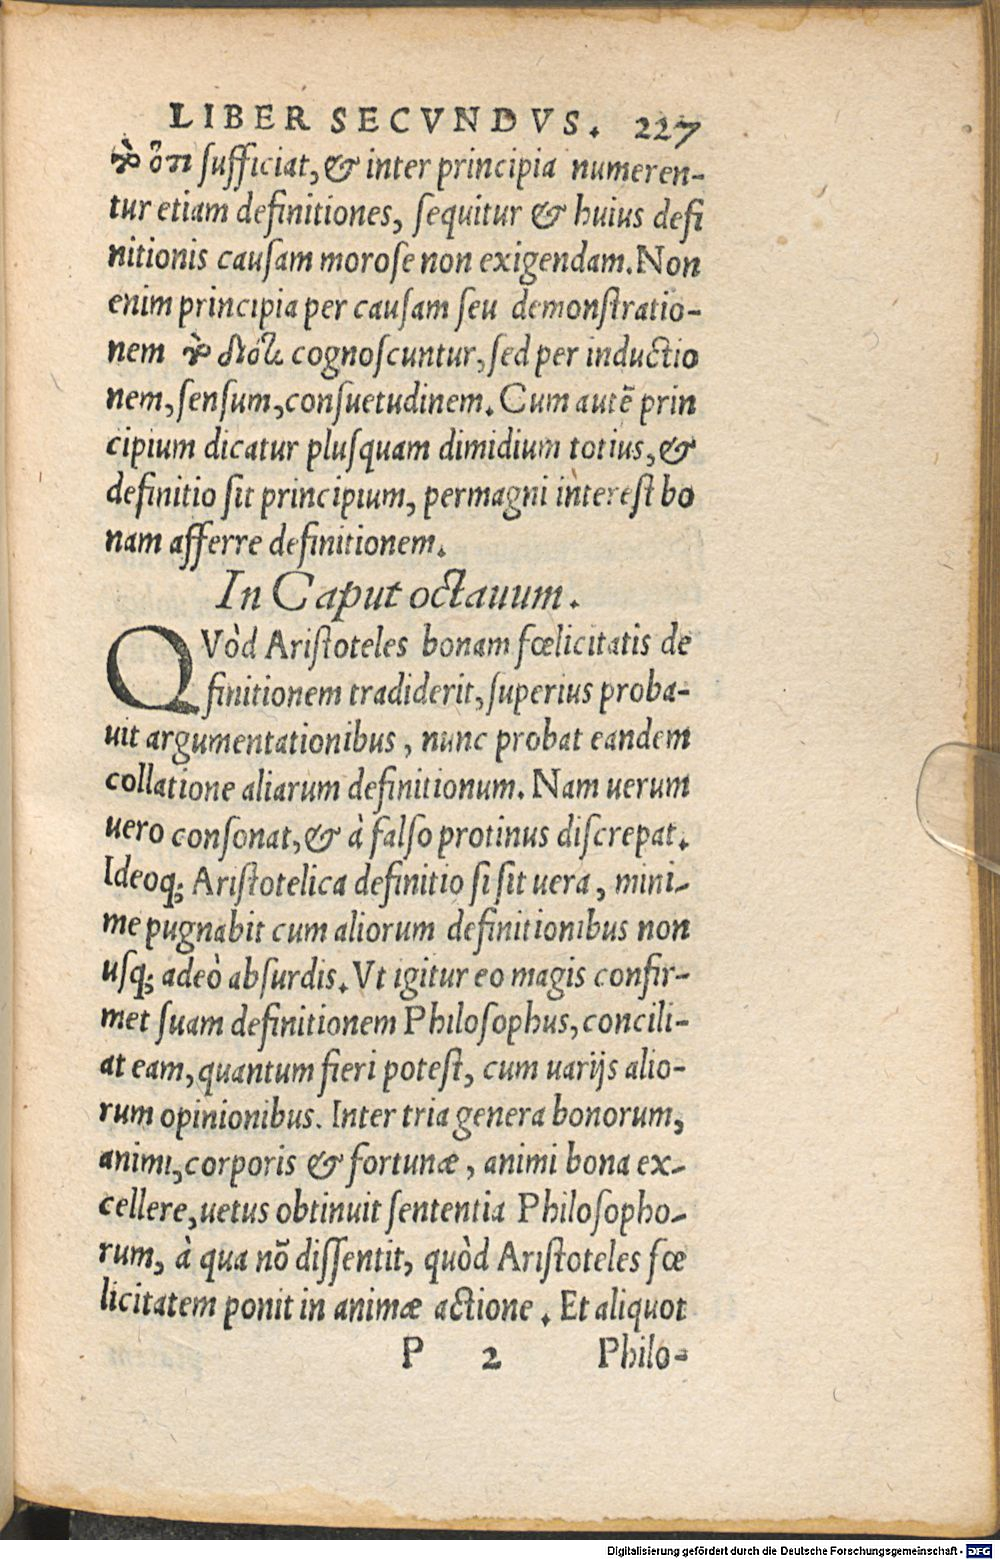 LIBER SECVNDVS. 227
τὸ ὅτι sufficiat, & inter principia numeren-
tur etiam definitiones, sequitur & huius defi
nitionis causam morose non exigendam. Non
enim principia per causam seu demonstratio-
nem τὸ διότι cognoscuntur, sed per inductio
nem, sensum, consuetudinem. Cum autē prin
cipium dicatur plusquam dimidium totius, &
definitio sit principium, permagni interest bo
nam afferre definitionem.
In Caput octauum.
QVòd Aristoteles bonam fœlicitatis de
finitionem tradiderit, superius proba-
uit argumentationibus, nunc probat eandem
collatione aliarum definitionum. Nam uerum
uero consonat, & à falso protinus discrepat.
Ideoq; Aristotelica definitio si sit uera, mini-
me pugnabit cum aliorum definitionibus non
usq; adeò absurdis. Vt igitur eo magis confir-
met suam definitionem Philosophus, concili-
at eam, quantum fieri potest, cum uarijs alio-
rum opinionibus. Inter tria genera bonorum,
animi, corporis & fortunæ, animi bona ex-
cellere, uetus obtinuit sententia Philosopho-
rum, à qua nō dissentit, quòd Aristoteles fœ
licitatem ponit in animæ actione. Et aliquot
P 2 Philo-
Digitalisierung gefördert durch die Deutsche Forschungsgemeinschaft - DFG